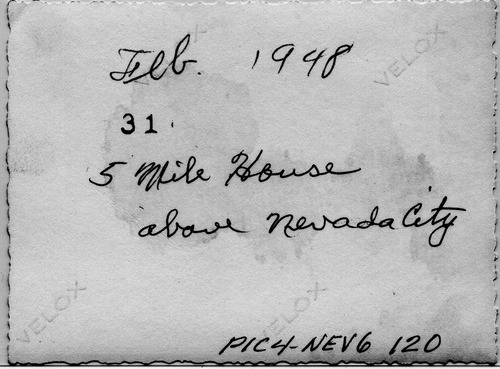 Feb. 1948
31.
5 Mile House
above Nevada City
PIC4-NEV6 120
VELOX
VELOX
VELOX
VELOX
VELOX